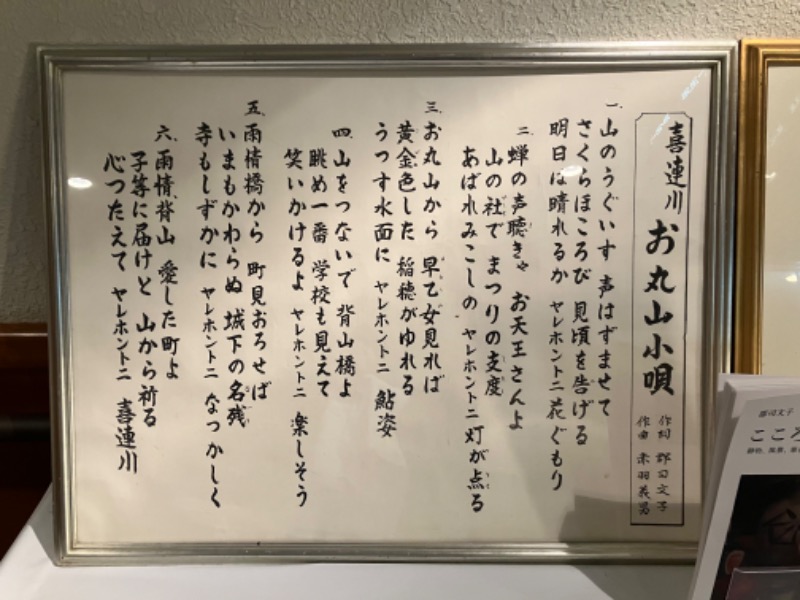 喜連川 お丸山小唄
作詞 郡司文子
作曲 赤羽義男
一、山のうぐいす 声はずませて
さくらほころび 見頃を告げる
明日は晴れるか ヤレホントニ 花ぐもり
二、蝉の声聴きゃ お天王さんよ
山の社で まつりの支度
あばれみこしの ヤレホントニ 灯が点る
三、お丸山から 早乙女見れば
黄金色した 稲穂がゆれる
うつす水面に ヤレホントニ 鮎姿
四、山をつないで 背山橋よ
眺め一番 学校も見えて
笑いかけるよ ヤレホントニ 楽しそう
五、雨情橋から 町見おろせば
いまもかわらぬ 城下の名残
寺もしずかに ヤレホントニ なつかしく
六、雨情背山 愛した町よ
子等に届けと 山から祈る
心つたえて ヤレホントニ 喜連川
郡司文子
こころ